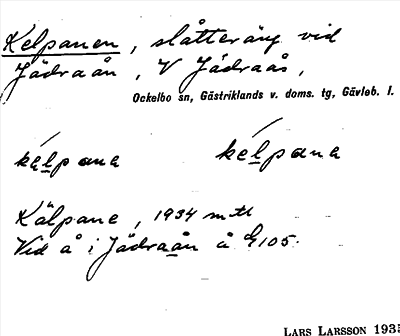 Kelpanen, slåtteräng vid
Jädraån, V Jädraås,
Ockelbo sn, Gästriklands v. doms. tg, Gävleb. l.
kelpana kelpana
Kälpane, 1934 mtl
Vid å i Jädraån å G105.
LARS LARSSON 1935